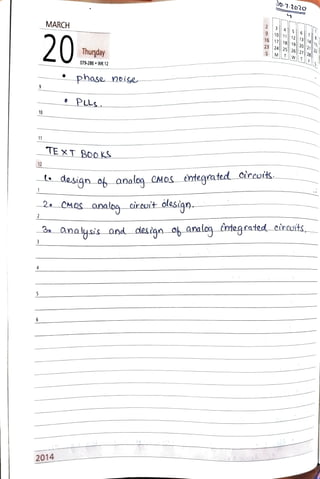 30-7-2020
MARCH
20 Thursday
079-286 • WK 12
• phase noise
9
• PLLs.
10
11
TEXT BOOKS
12
1. design of analog CMOS integrated circuits.
1
2. CMOS analog circuit design.
2
3. analysis and design of analog integrated circuits.
3
4
5
6
2014